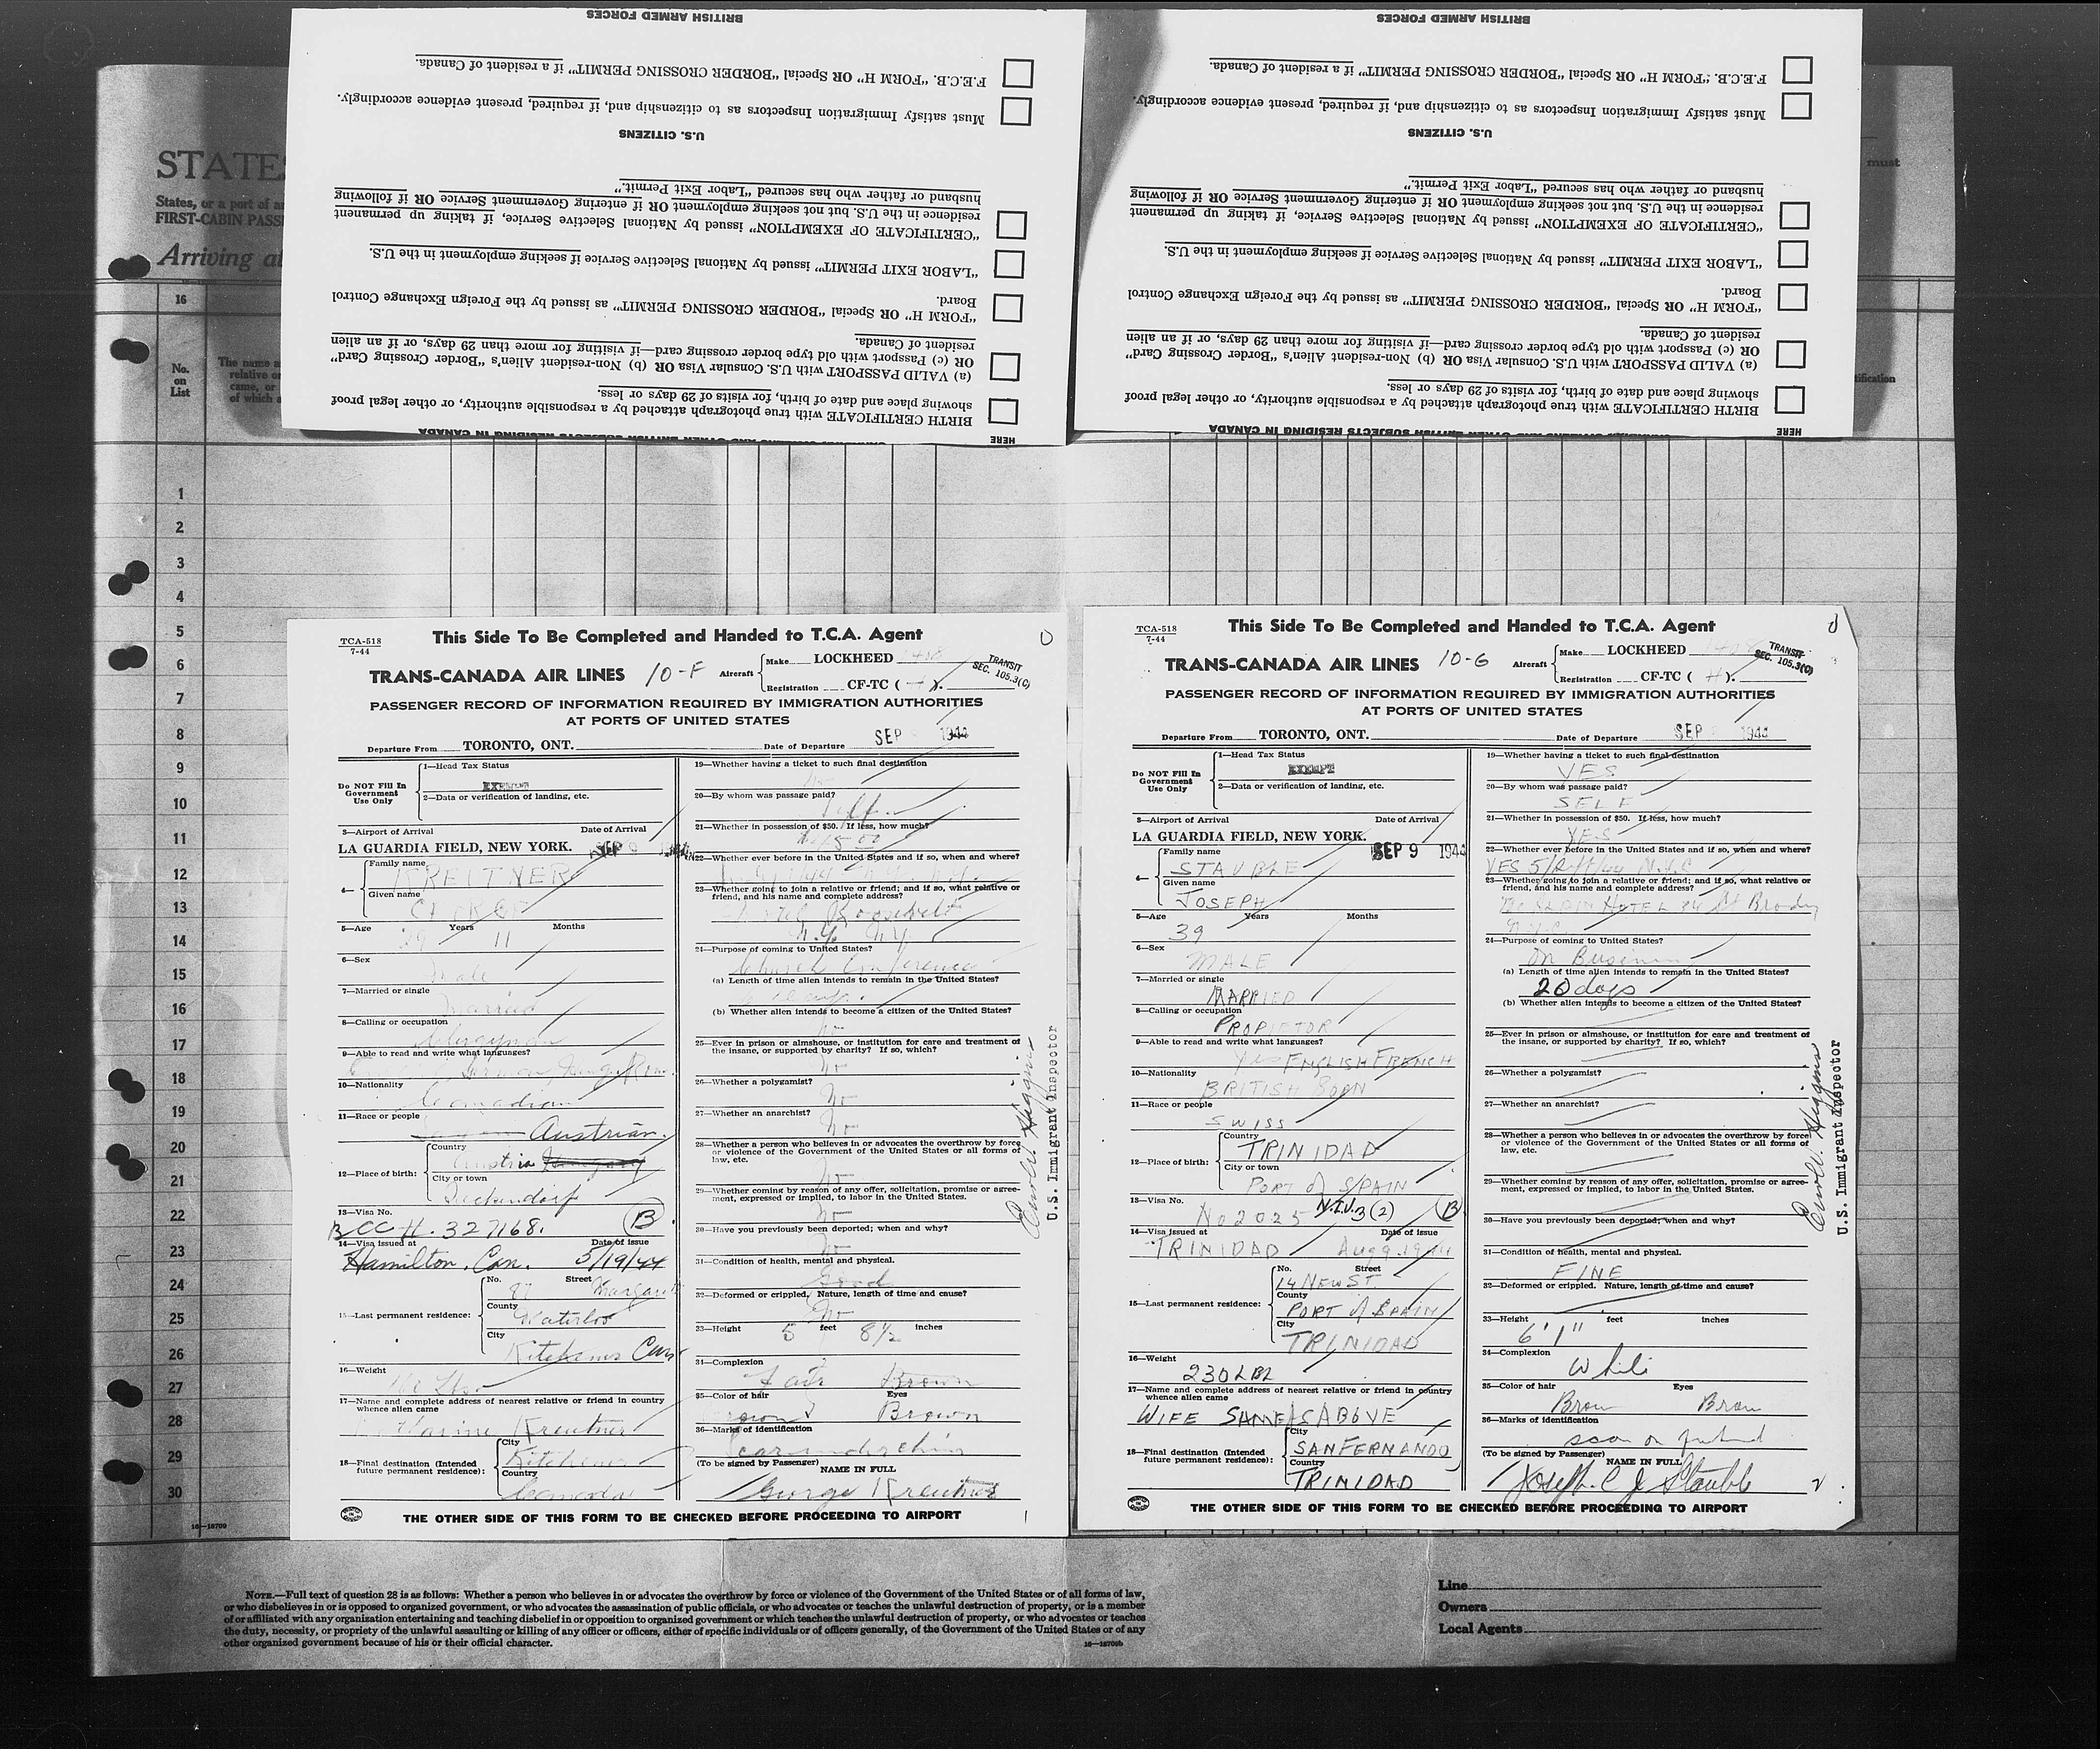 BRITISH ARMED FORCES
F.E.C.B. "FORM H" OR Special "BORDER CROSSING PERMIT" if a resident of Canada.
Must satisfy Immigration Inspectors as to citizenship and, if required, present evidence accordingly.
U.S. CITIZENS
husband or father who has secured "Labor Exit Permit."
residence in the U.S. but not seeking employment OR if entering Government Service OR if following
"CERTIFICATE OF EXEMPTION" issued by National Selective Service, if taking up permanent
"LABOR EXIT PERMIT" issued by National Selective Service if seeking employment in the U.S.
Board.
"FORM H" OR Special "BORDER CROSSING PERMIT" as issued by the Foreign Exchange Control
resident of Canada.
OR (c) Passport with old type border crossing card—if visiting for more than 29 days, or if an alien
(a) VALID PASSPORT with U.S. Consular Visa OR (b) Non-resident Alien's "Border Crossing Card"
showing place and date of birth, for visits of 29 days or less.
BIRTH CERTIFICATE with true photograph attached by a responsible authority, or other legal proof
HERE
BRITISH ARMED FORCES
F.E.C.B. "FORM H" OR Special "BORDER CROSSING PERMIT" if a resident of Canada.
Must satisfy Immigration Inspectors as to citizenship and, if required, present evidence accordingly.
U.S. CITIZENS
husband or father who has secured "Labor Exit Permit."
residence in the U.S. but not seeking employment OR if entering Government Service OR if following
"CERTIFICATE OF EXEMPTION" issued by National Selective Service, if taking up permanent
"LABOR EXIT PERMIT" issued by National Selective Service if seeking employment in the U.S.
Board.
"FORM H" OR Special "BORDER CROSSING PERMIT" as issued by the Foreign Exchange Control
resident of Canada.
OR (c) Passport with old type border crossing card—if visiting for more than 29 days, or if an alien
(a) VALID PASSPORT with U.S. Consular Visa OR (b) Non-resident Alien's "Border Crossing Card"
showing place and date of birth, for visits of 29 days or less.
BIRTH CERTIFICATE with true photograph attached by a responsible authority, or other legal proof
HERE
STATES
States, or a port of
FIRST-CABIN PASS
Arriving at
must
16
No.
on
List
The name
relative or
came, or
of which
1
2
3
4
5
6
7
8
9
10
11
12
13
14
15
16
17
18
19
20
21
22
23
24
25
26
27
28
29
30
16—18709
TCA-518
7-44
This Side To Be Completed and Handed to T.C.A. Agent
TRANS-CANADA AIR LINES 10-F Aircraft
Make LOCKHEED
Registration CF-TC ( ).
TRANSIT
SEC. 105.3(C)
PASSENGER RECORD OF INFORMATION REQUIRED BY IMMIGRATION AUTHORITIES
AT PORTS OF UNITED STATES
Departure From TORONTO, ONT. Date of Departure SEP 1944
Do NOT Fill In
Government
Use Only
1—Head Tax Status
EXEMPT
2—Data or verification of landing, etc.
3—Airport of Arrival Date of Arrival
LA GUARDIA FIELD, NEW YORK. SEP 9
4— Family name
KREITNER
Given name
5—Age Years 11 Months
6—Sex
Male
7—Married or single
Married
8—Calling or occupation
Clergyman
9—Able to read and write what languages?
German
10—Nationality
Canadian
11—Race or people
Austrian.
12—Place of birth:
Country
Austria Hungary
City or town
13—Visa No.
BCC H. 327168. B
14—Visa issued at Date of issue
Hamilton, Can. 5/19/44
15—Last permanent residence:
No. Street
87 Margaret
County
Waterloo
City
Kitchener Can
16—Weight
17—Name and complete address of nearest relative or friend in country
whence alien came
Kreutner
18—Final destination (Intended
future permanent residence):
City
Kitchener
Country
Canada
19—Whether having a ticket to such final destination
20—By whom was passage paid?
Self
21—Whether in possession of $50. If less, how much?
22—Whether ever before in the United States and if so, when and where?
23—Whether going to join a relative or friend; and if so, what relative or
friend, and his name and complete address?
Hotel Roosevelt
N.Y. N.Y.
24—Purpose of coming to United States?
Church Conference
(a) Length of time alien intends to remain in the United States?
(b) Whether alien intends to become a citizen of the United States?
No
25—Ever in prison or almshouse, or institution for care and treatment of
the insane, or supported by charity? If so, which?
No
26—Whether a polygamist?
No
27—Whether an anarchist?
No
28—Whether a person who believes in or advocates the overthrow by force
or violence of the Government of the United States or all forms of
law, etc.
No
29—Whether coming by reason of any offer, solicitation, promise or agree-
ment, expressed or implied, to labor in the United States.
No
30—Have you previously been deported; when and why?
No
31—Condition of health, mental and physical.
Good
32—Deformed or crippled. Nature, length of time and cause?
No
33—Height 5 feet 8½ inches
34—Complexion
Fair Brown
35—Color of hair Eyes
Brown Brown
36—Marks of identification
Scar under chin
(To be signed by Passenger) NAME IN FULL
George Kreutner
U.S. Immigrant Inspector
THE OTHER SIDE OF THIS FORM TO BE CHECKED BEFORE PROCEEDING TO AIRPORT
TCA-518
7-44
This Side To Be Completed and Handed to T.C.A. Agent
TRANS-CANADA AIR LINES 10-G Aircraft
Make LOCKHEED
Registration CF-TC ( H ).
TRANSIT
SEC. 105.3(C)
PASSENGER RECORD OF INFORMATION REQUIRED BY IMMIGRATION AUTHORITIES
AT PORTS OF UNITED STATES
Departure From TORONTO, ONT. Date of Departure SEP 1944
Do NOT Fill In
Government
Use Only
1—Head Tax Status
EXEMPT
2—Data or verification of landing, etc.
3—Airport of Arrival Date of Arrival
LA GUARDIA FIELD, NEW YORK. SEP 9 1944
4— Family name
STAUBLE
Given name
JOSEPH
5—Age Years Months
39
6—Sex
MALE
7—Married or single
MARRIED
8—Calling or occupation
PROPIETOR
9—Able to read and write what languages?
Yes ENGLISH FRENCH
10—Nationality
BRITISH BORN
11—Race or people
SWISS
12—Place of birth:
Country
TRINIDAD
City or town
PORT of SPAIN
13—Visa No.
No 2025 N.I.V. 3(2) B
14—Visa issued at Date of issue
TRINIDAD Aug 9. 1944
15—Last permanent residence:
No. Street
14 NEW ST.
County
PORT of SPAIN
City
TRINIDAD
16—Weight
230 LBS
17—Name and complete address of nearest relative or friend in country
whence alien came
WIFE SAME AS ABOVE
18—Final destination (Intended
future permanent residence):
City
SAN FERNANDO
Country
TRINIDAD
19—Whether having a ticket to such final destination
YES
20—By whom was passage paid?
SELF
21—Whether in possession of $50. If less, how much?
YES
22—Whether ever before in the United States and if so, when and where?
YES
23—Whether going to join a relative or friend; and if so, what relative or
friend, and his name and complete address?
HOTEL 34 St Broadway
24—Purpose of coming to United States?
On Business
(a) Length of time alien intends to remain in the United States?
20 days
(b) Whether alien intends to become a citizen of the United States?
25—Ever in prison or almshouse, or institution for care and treatment of
the insane, or supported by charity? If so, which?
26—Whether a polygamist?
27—Whether an anarchist?
28—Whether a person who believes in or advocates the overthrow by force
or violence of the Government of the United States or all forms of
law, etc.
29—Whether coming by reason of any offer, solicitation, promise or agree-
ment, expressed or implied, to labor in the United States.
30—Have you previously been deported; when and why?
31—Condition of health, mental and physical.
FINE
32—Deformed or crippled. Nature, length of time and cause?
33—Height feet inches
6' 1"
34—Complexion
White
35—Color of hair Eyes
Brown Brown
36—Marks of identification
scar on forehead
(To be signed by Passenger) NAME IN FULL
Joseph. C J Stauble
U.S. Immigrant Inspector
THE OTHER SIDE OF THIS FORM TO BE CHECKED BEFORE PROCEEDING TO AIRPORT
NOTE.—Full text of question 28 is as follows: Whether a person who believes in or advocates the overthrow by force or violence of the Government of the United States or of all forms of law,
or who disbelieves in or is opposed to organized government, or who advocates the assassination of public officials, or who advocates or teaches the unlawful destruction of property, or is a member
of or affiliated with any organization entertaining and teaching disbelief in or opposition to organized government or which teaches the unlawful destruction of property, or who advocates or teaches
the duty, necessity, or propriety of the unlawful assaulting or killing of any officer or officers, either of specific individuals or of officers generally, of the Government of the United States or of any
other organized government because of his or their official character.
16—18709b
Line
Owners
Local Agents